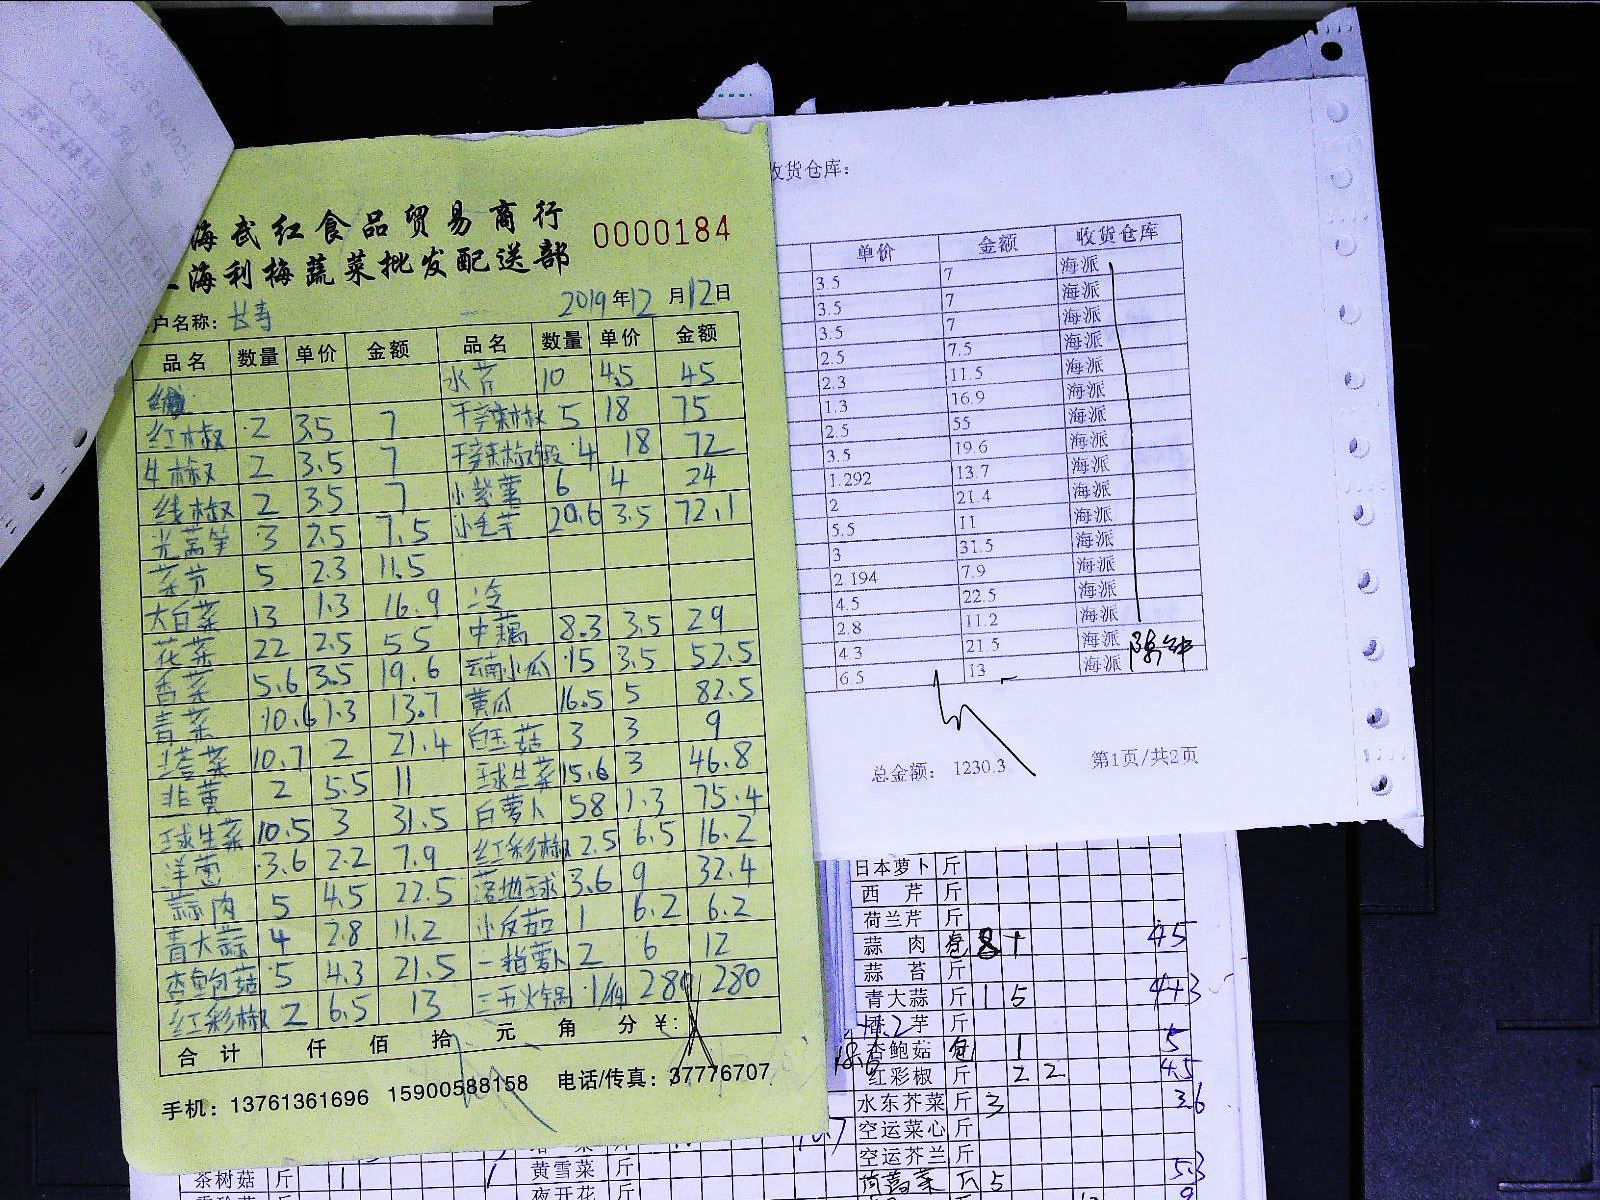 海武红食品贸易商行 0000184
海利梅蔬菜批发配送部
2019年12月12日
户名称：长寿
品名 数量 单价 金额 品名 数量 单价 金额
水芹 10 4.5 45
红椒 2 3.5 7 干辣椒 5 18 75
牛椒 2 3.5 7 4 18 72
线椒 2 3.5 7 小紫薯 6 4 24
光莴笋 3 2.5 7.5 小毛芋 20.6 3.5 72.1
5 2.3 11.5
大白菜 13 1.3 16.9 冷
花菜 22 2.5 55 中藕 8.3 3.5 29
香菜 5.6 3.5 19.6 云南小瓜 15 3.5 52.5
青菜 10.6 1.3 13.7 黄瓜 16.5 5 82.5
塔菜 10.7 2 21.4 白玉菇 3 3 9
韭黄 2 5.5 11 球生菜 15.6 3 46.8
球生菜 10.5 3 31.5 白萝卜 58 1.3 75.4
洋葱 3.6 2.2 7.9 红彩椒 2.5 6.5 16.2
蒜肉 5 4.5 22.5 落地球 3.6 9 32.4
青大蒜 4 2.8 11.2 小反茄 1 6.2 6.2
杏鲍菇 5 4.3 21.5 一指萝卜 2 6 12
红彩椒 2 6.5 13 三五火锅 280 280
合计 仟 佰 拾 元 角 分 ¥:
手机：13761361696 15900588158 电话/传真：37776707
收货仓库：
单价 金额 收货仓库
3.5 7 海派
3.5 7 海派
3.5 7 海派
2.5 7.5 海派
2.3 11.5 海派
1.3 16.9 海派
2.5 55 海派
3.5 19.6 海派
1.292 13.7 海派
2 21.4 海派
5.5 11 海派
3 31.5 海派
2.194 7.9 海派
4.5 22.5 海派
2.8 11.2 海派
4.3 21.5 海派
6.5 13 海派
总金额： 1230.3 第1页/共2页
日本萝卜 斤
西芹 斤
荷兰芹 斤
蒜肉 包 8 45
蒜苔 斤
青大蒜 斤 1 5 4+3
香芋 斤
杏鲍菇 包 1 5
红彩椒 斤 2 2 4.5
水东芥菜 斤 3 3.6
空运菜心 斤
空运芥兰 斤
茼蒿菜 斤 5 5.3
茶树菇 斤 1 1 黄雪菜 斤
夜开花 斤